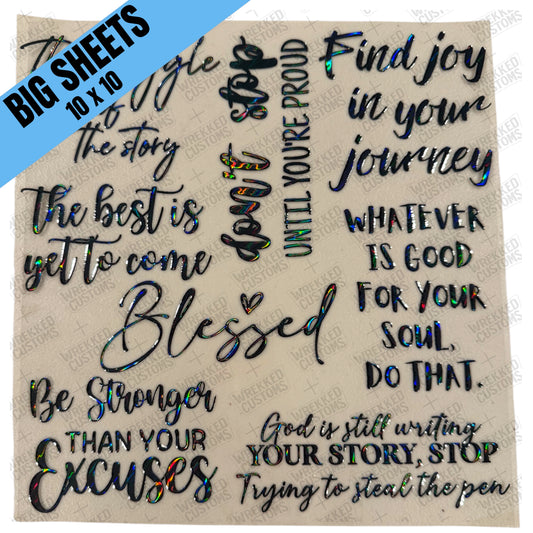 BIG SHEETS
10 x 10
the
of
the story
don't stop
UNTIL YOU'RE PROUD
Find joy
in your
journey
The best is
yet to come
WHATEVER
IS GOOD
FOR YOUR
SOUL,
DO THAT.
Blessed
Be Stronger
THAN YOUR
Excuses
God is still writing
YOUR STORY, STOP
Trying to steal the pen
WREKKED
CUSTOMS